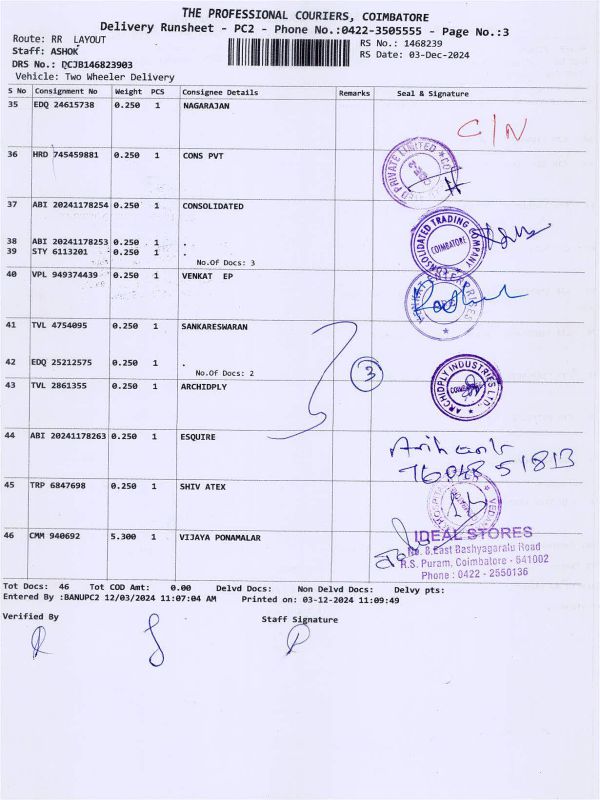 THE PROFESSIONAL COURIERS, COIMBATORE
Delivery Runsheet - PC2 - Phone No.:0422-3505555 - Page No.:3
Route: RR LAYOUT
RS No.: 1468239
Staff: ASHOK
RS Date: 03-Dec-2024
DRS No.: DCJB146823903
Vehicle: Two Wheeler Delivery
S No Consignment No Weight PCS Consignee Details Remarks Seal & Signature
35 EDQ 24615738 0.250 1 NAGARAJAN
C/N
36 HRD 745459881 0.250 1 CONS PVT
PRIVATE LIMITED
37 ABI 20241178254 0.250 1 CONSOLIDATED
CONSOLIDATED TRADING COMPANY
COIMBATORE
38 ABI 20241178253 0.250 1 .
39 STY 6113201 0.250 1 .
No.Of Docs: 3
40 VPL 949374439 0.250 1 VENKAT EP
41 TVL 4754095 0.250 1 SANKARESWARAN
42 EDQ 25212575 0.250 1 .
No.Of Docs: 2
3
43 TVL 2861355 0.250 1 ARCHIDPLY
ARCHIDPLY INDUSTRIES LTD.
44 ABI 20241178263 0.250 1 ESQUIRE
45 TRP 6847698 0.250 1 SHIV ATEX
46 CMM 940692 5.300 1 VIJAYA PONAMALAR
IDEAL STORES
No. 8,East Bashyagaralu Road
R.S. Puram, Coimbatore - 641002
Phone : 0422 - 2550136
Tot Docs: 46 Tot COD Amt: 0.00 Delvd Docs: Non Delvd Docs: Delvy pts:
Entered By :BANUPC2 12/03/2024 11:07:04 AM Printed on: 03-12-2024 11:09:49
Verified By Staff Signature